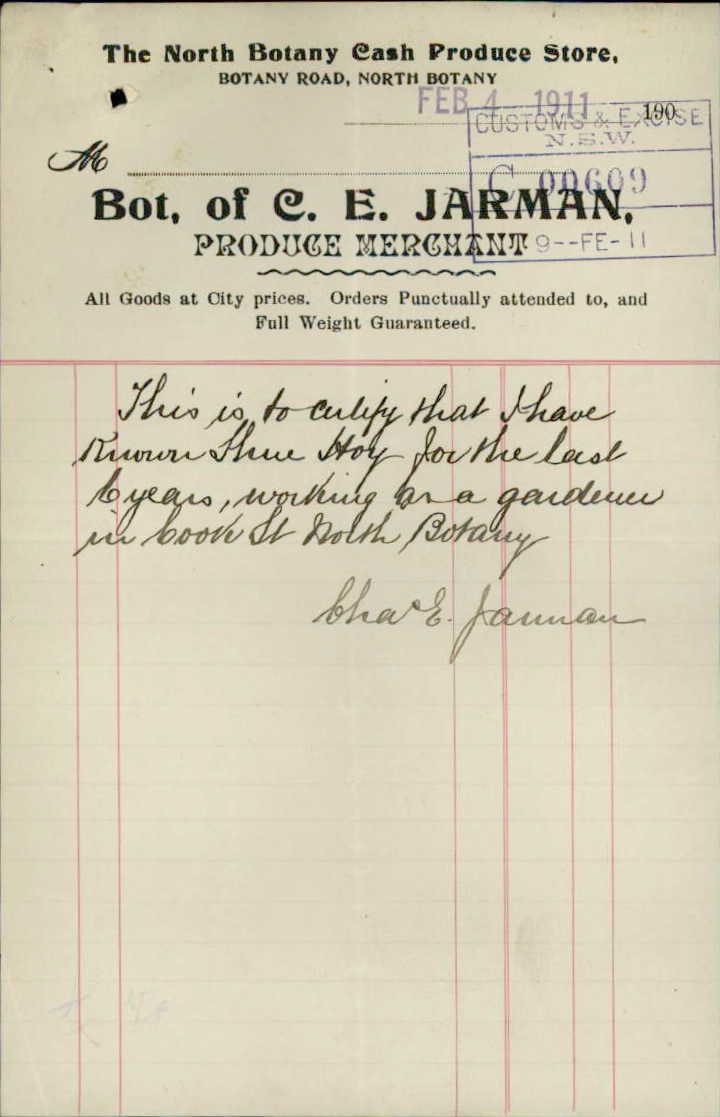 The North Botany Cash Produce Store,
BOTANY ROAD, NORTH BOTANY
FEB 4 - 1911 190
CUSTOMS & EXCISE
N.S.W.
M
C 00609
Bot. of C. E. JARMAN,
PRODUCE MERCHANT
9--FE-11
All Goods at City prices. Orders Punctually attended to, and
Full Weight Guaranteed.
This is to certify that I have
Known Shue Hoy for the last
6 years, working as a gardener
in Cook St North Botany
Chas E. Jarman